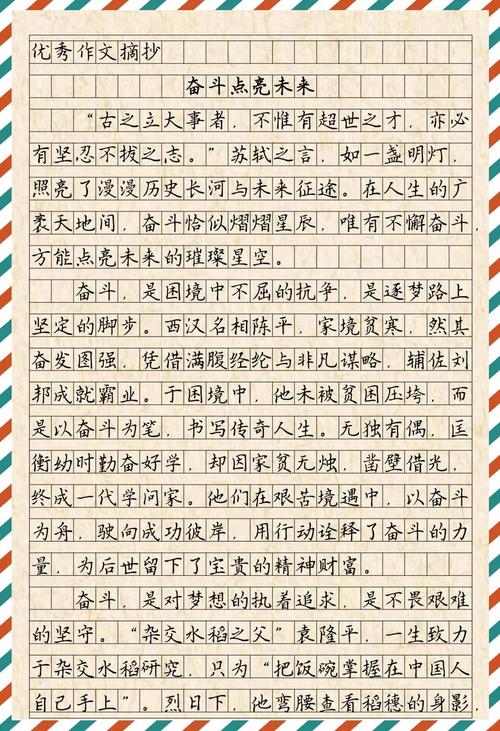 优秀作文摘抄
奋斗点亮未来
“古之立大事者，不惟有超世之才，亦必
有坚忍不拔之志。”苏轼之言，如一盏明灯，
照亮了漫漫历史长河与未来征途。在人生的广
袤天地间，奋斗恰似熠熠星辰，唯有不懈奋斗，
方能点亮未来的璀璨星空。
奋斗，是困境中不屈的抗争，是逐梦路上
坚定的脚步。西汉名相陈平，家境贫寒，然其
奋发图强，凭借满腹经纶与非凡谋略，辅佐刘
邦成就霸业。于困境中，他未被贫困压垮，而
是以奋斗为笔，书写传奇人生。无独有偶，匡
衡幼时勤奋好学，却因家贫无烛，凿壁借光，
终成一代学问家。他们在艰苦境遇中，以奋斗
为舟，驶向成功彼岸，用行动诠释了奋斗的力
量，为后世留下了宝贵的精神财富。
奋斗，是对梦想的执着追求，是不畏艰难
的坚守。“杂交水稻之父”袁隆平，一生致力
于杂交水稻研究，只为“把饭碗掌握在中国人
自己手上”。烈日下，他弯腰查看稻穗的身影，